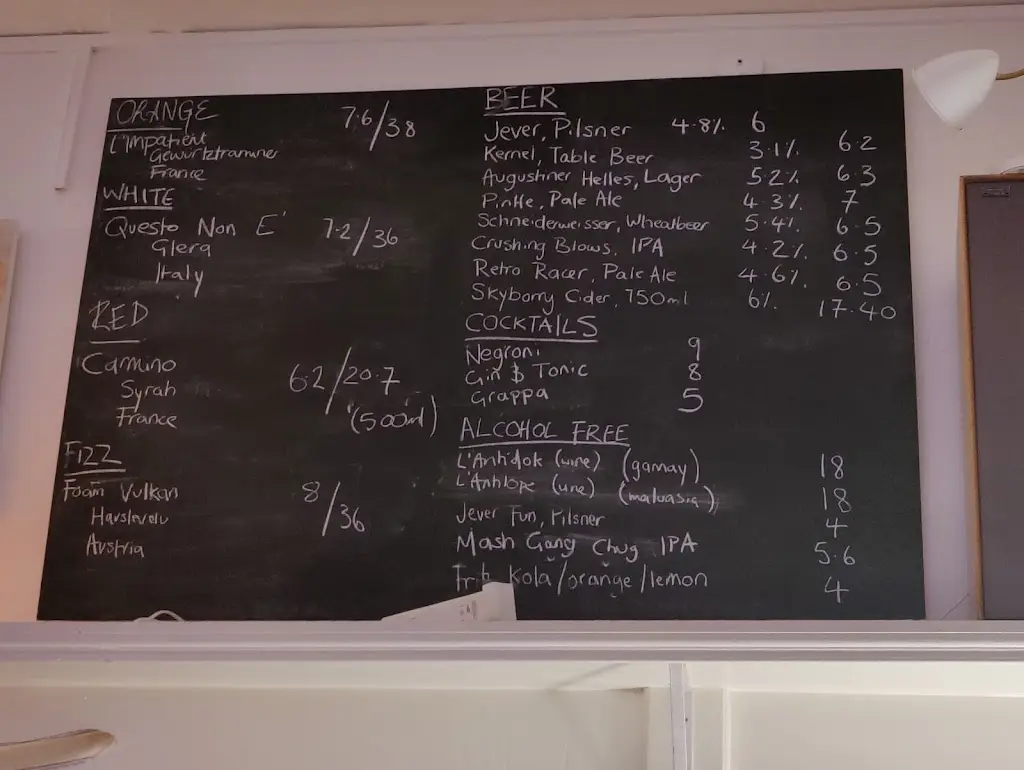 ORANGE
L'Impatient 7.6/38
Gewurtztraminer
France
WHITE
Questo Non E' 7.2/36
Glera
Italy
RED
Camino 6.2/20.7
Syrah
France (500ml)
FIZZ
Foam Vulkan 8/36
Harslevelu
Austria
BEER
Jever, Pilsner 4.8% 6
Kernel, Table Beer 3.1% 6.2
Augustiner Helles, Lager 5.2% 6.3
Pale Ale 4.3% 7
Schneiderweisser, Wheatbeer 5.4% 6.5
Crushing Blows, IPA 4.2% 6.5
Retro Racer, Pale Ale 4.6% 6.5
Skyborry Cider, 750ml 6% 17.40
COCKTAILS
Negroni 9
Gin & Tonic 8
Grappa 5
ALCOHOL FREE
L'Antidok (wine) (gamay) 18
L'Antilope (wine) (malvasia) 18
Jever Fun, Pilsner 4
Mash Gang Chug IPA 5.6
Kola/orange/lemon 4